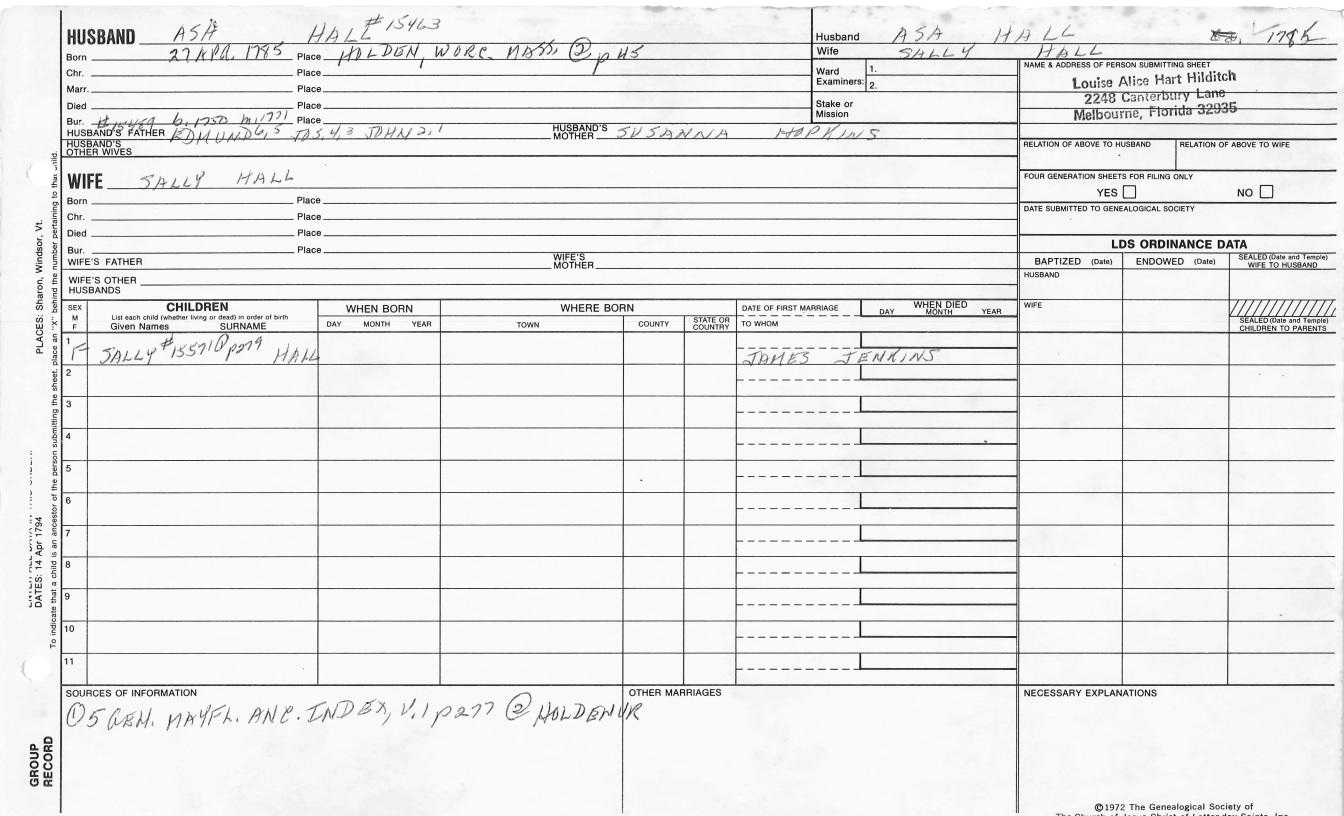 HUSBAND ASA HALL #15463
Born 27 APR. 1785 Place HOLDEN, WORC. MASS. ② p 45
Chr. Place
Marr. Place
Died Place
Bur. #15459 b. 1750 m. 1771 Place
HUSBAND'S FATHER EDMUND 6, 5 JOS. 4, 3 JOHN 2, 1 HUSBAND'S MOTHER SUSANNA HOPKINS
HUSBAND'S OTHER WIVES
WIFE SALLY HALL
Born Place
Chr. Place
Died Place
Bur. Place
WIFE'S FATHER WIFE'S MOTHER
WIFE'S OTHER HUSBANDS
Husband ASA HALL 1785
Wife SALLY HALL
Ward Examiners: 1.
2.
Stake or Mission
NAME & ADDRESS OF PERSON SUBMITTING SHEET
Louise Alice Hart Hilditch
2248 Canterbury Lane
Melbourne, Florida 32935
RELATION OF ABOVE TO HUSBAND RELATION OF ABOVE TO WIFE
FOUR GENERATION SHEETS FOR FILING ONLY
YES NO
DATE SUBMITTED TO GENEALOGICAL SOCIETY
LDS ORDINANCE DATA
BAPTIZED (Date) ENDOWED (Date) SEALED (Date and Temple) WIFE TO HUSBAND
HUSBAND
WIFE
SEALED (Date and Temple) CHILDREN TO PARENTS
SEX M F
CHILDREN
List each child (whether living or dead) in order of birth
Given Names SURNAME
WHEN BORN
DAY MONTH YEAR
WHERE BORN
TOWN COUNTY STATE OR COUNTRY
DATE OF FIRST MARRIAGE
TO WHOM
WHEN DIED
DAY MONTH YEAR
1 F SALLY #15571 ① p279 HALL JAMES JENKINS
2
3
4
5
6
7
8
9
10
11
SOURCES OF INFORMATION
① 5 GEN. MAYFL. ANC. INDEX, V.1 p277 ② HOLDEN VR
OTHER MARRIAGES
NECESSARY EXPLANATIONS
©1972 The Genealogical Society of
The Church of Jesus Christ of Latter-day Saints, Inc.
PLACES: Sharon, Windsor, Vt.
DATES: 14 Apr 1794
To indicate that a child is an ancestor of the person submitting the sheet, place an "X" behind the number pertaining to that child.
GROUP RECORD